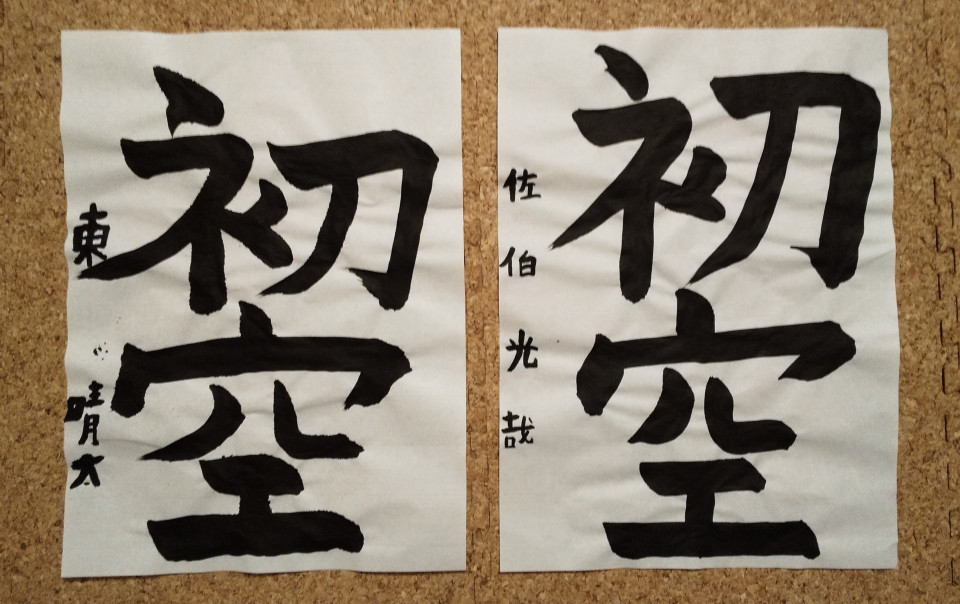 初空
東 晴太
初空
佐伯光哉